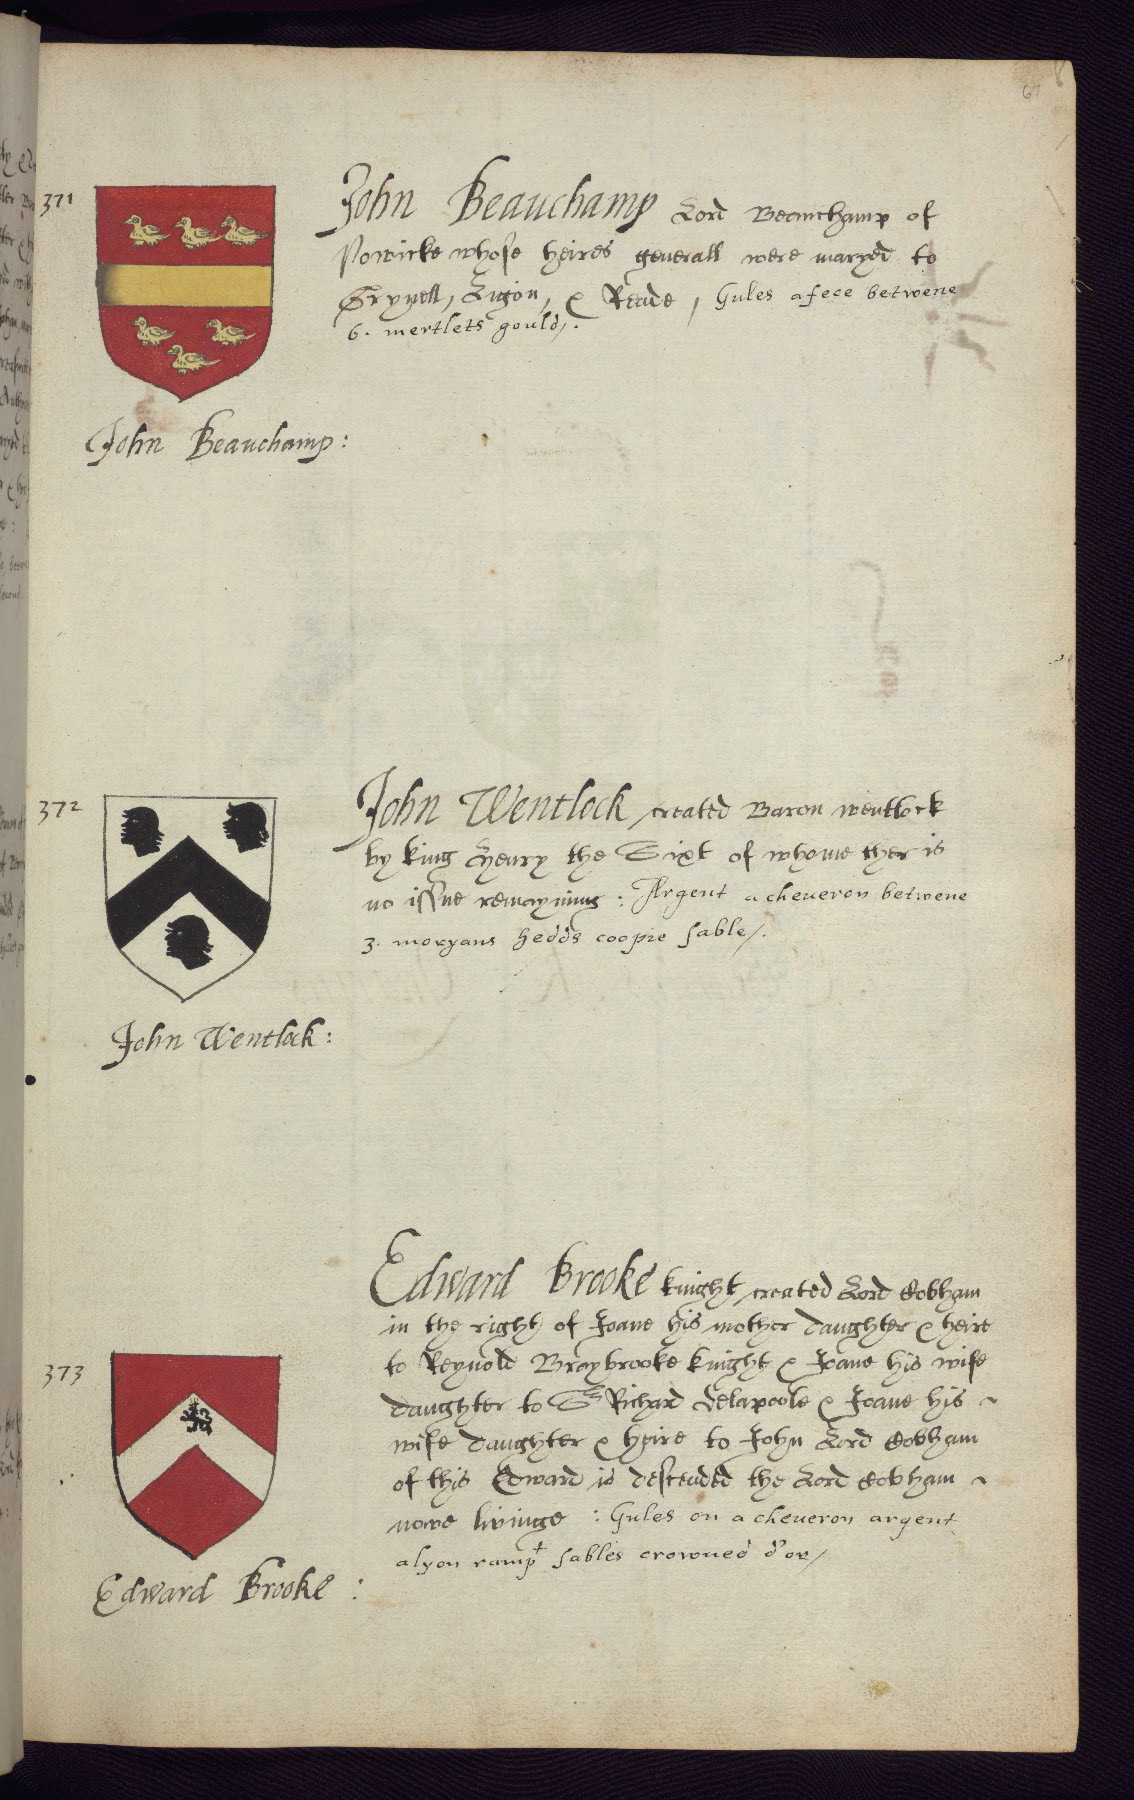 67
371
John Beauchamp Lord Beauchamp of
Powicke whose heires generall were maryed to
Grynell, Ligon, & Reade, Gules a fece betwene
6. mertlets gould.
John Beauchamp:
372
John Wentlock, created Baron wentlock
by king Henry the Sixt of whome ther is
no issue remayning: Argent a cheueron betwene
3. moryans hedds coopie sable.
John Wentlock:
373
Edward Brooke knight, created Lord Cobham
in the right of Joane his mother daughter & heire
to Reynold Braybrooke knight & Joane his wife
daughter to Sr Richard Delapoole & Joane his
wife daughter & heire to John Lord Cobham
of this Edward is descended the Lord Cobham
nowe livinge: Gules on a cheueron argent
a lyon rampt sables crowned d'or
Edward Brooke: